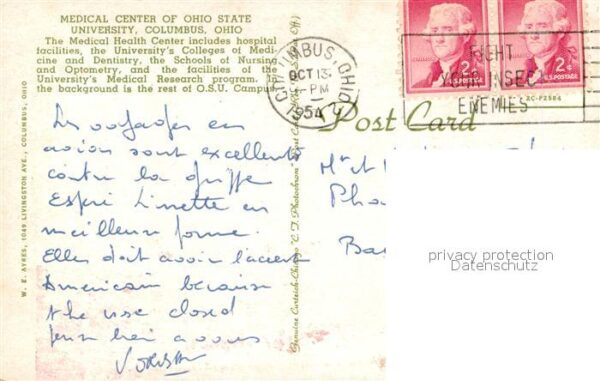 MEDICAL CENTER OF OHIO STATE
UNIVERSITY, COLUMBUS, OHIO
The Medical Health Center includes hospital
facilities, the University's Colleges of Medi-
cine and Dentistry, the Schools of Nursing
and Optometry, and the facilities of the
University's Medical Research program. In
the background is the rest of O.S.U. Campus
W. E. AYRES, 1049 LIVINGSTON AVE., COLUMBUS, OHIO
COLUMBUS, OHIO
OCT 13
PM
1954
FIGHT
YOUR INSECT
ENEMIES
2¢
U.S. POSTAGE
2¢
U.S. POSTAGE
Post Card
Genuine Curteich-Chicago "C.T. Photochrom" Post Card
Les voyages en
avion sont excellents
contre la grippe
Linette en
meilleure forme.
Elles doit avoir l'accent
Americain
the closed
a vous
Mr et
Pha
Ba
privacy protection
Datenschutz